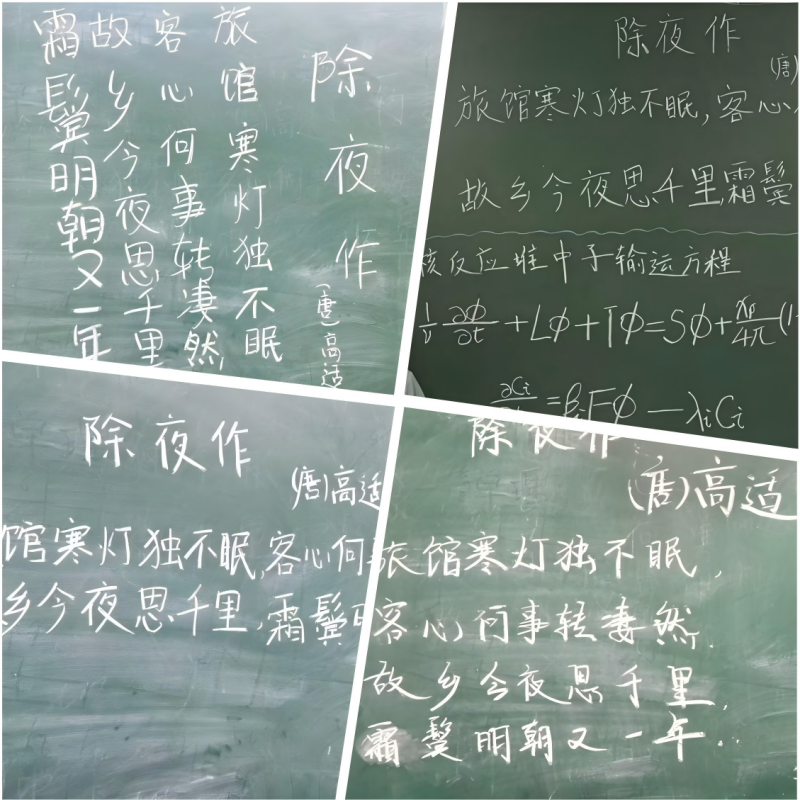 除夜作
(唐)高适
旅馆寒灯独不眠
客心何事转凄然
故乡今夜思千里
霜鬓明朝又一年
除夜作
(唐)
旅馆寒灯独不眠,客心
故乡今夜思千里,霜鬓
核反应堆中子输运方程
1/v ∂ϕ/∂t +Lϕ+Tϕ=Sϕ+χp/4π(1-
∂Ci/∂t =βiFϕ—λiCi
除夜作
(唐)高适
馆寒灯独不眠,客心何
乡今夜思千里,霜鬓
除夜作
(唐)高适
旅馆寒灯独不眠,
客心何事转凄然.
故乡今夜思千里,
霜鬓明朝又一年..